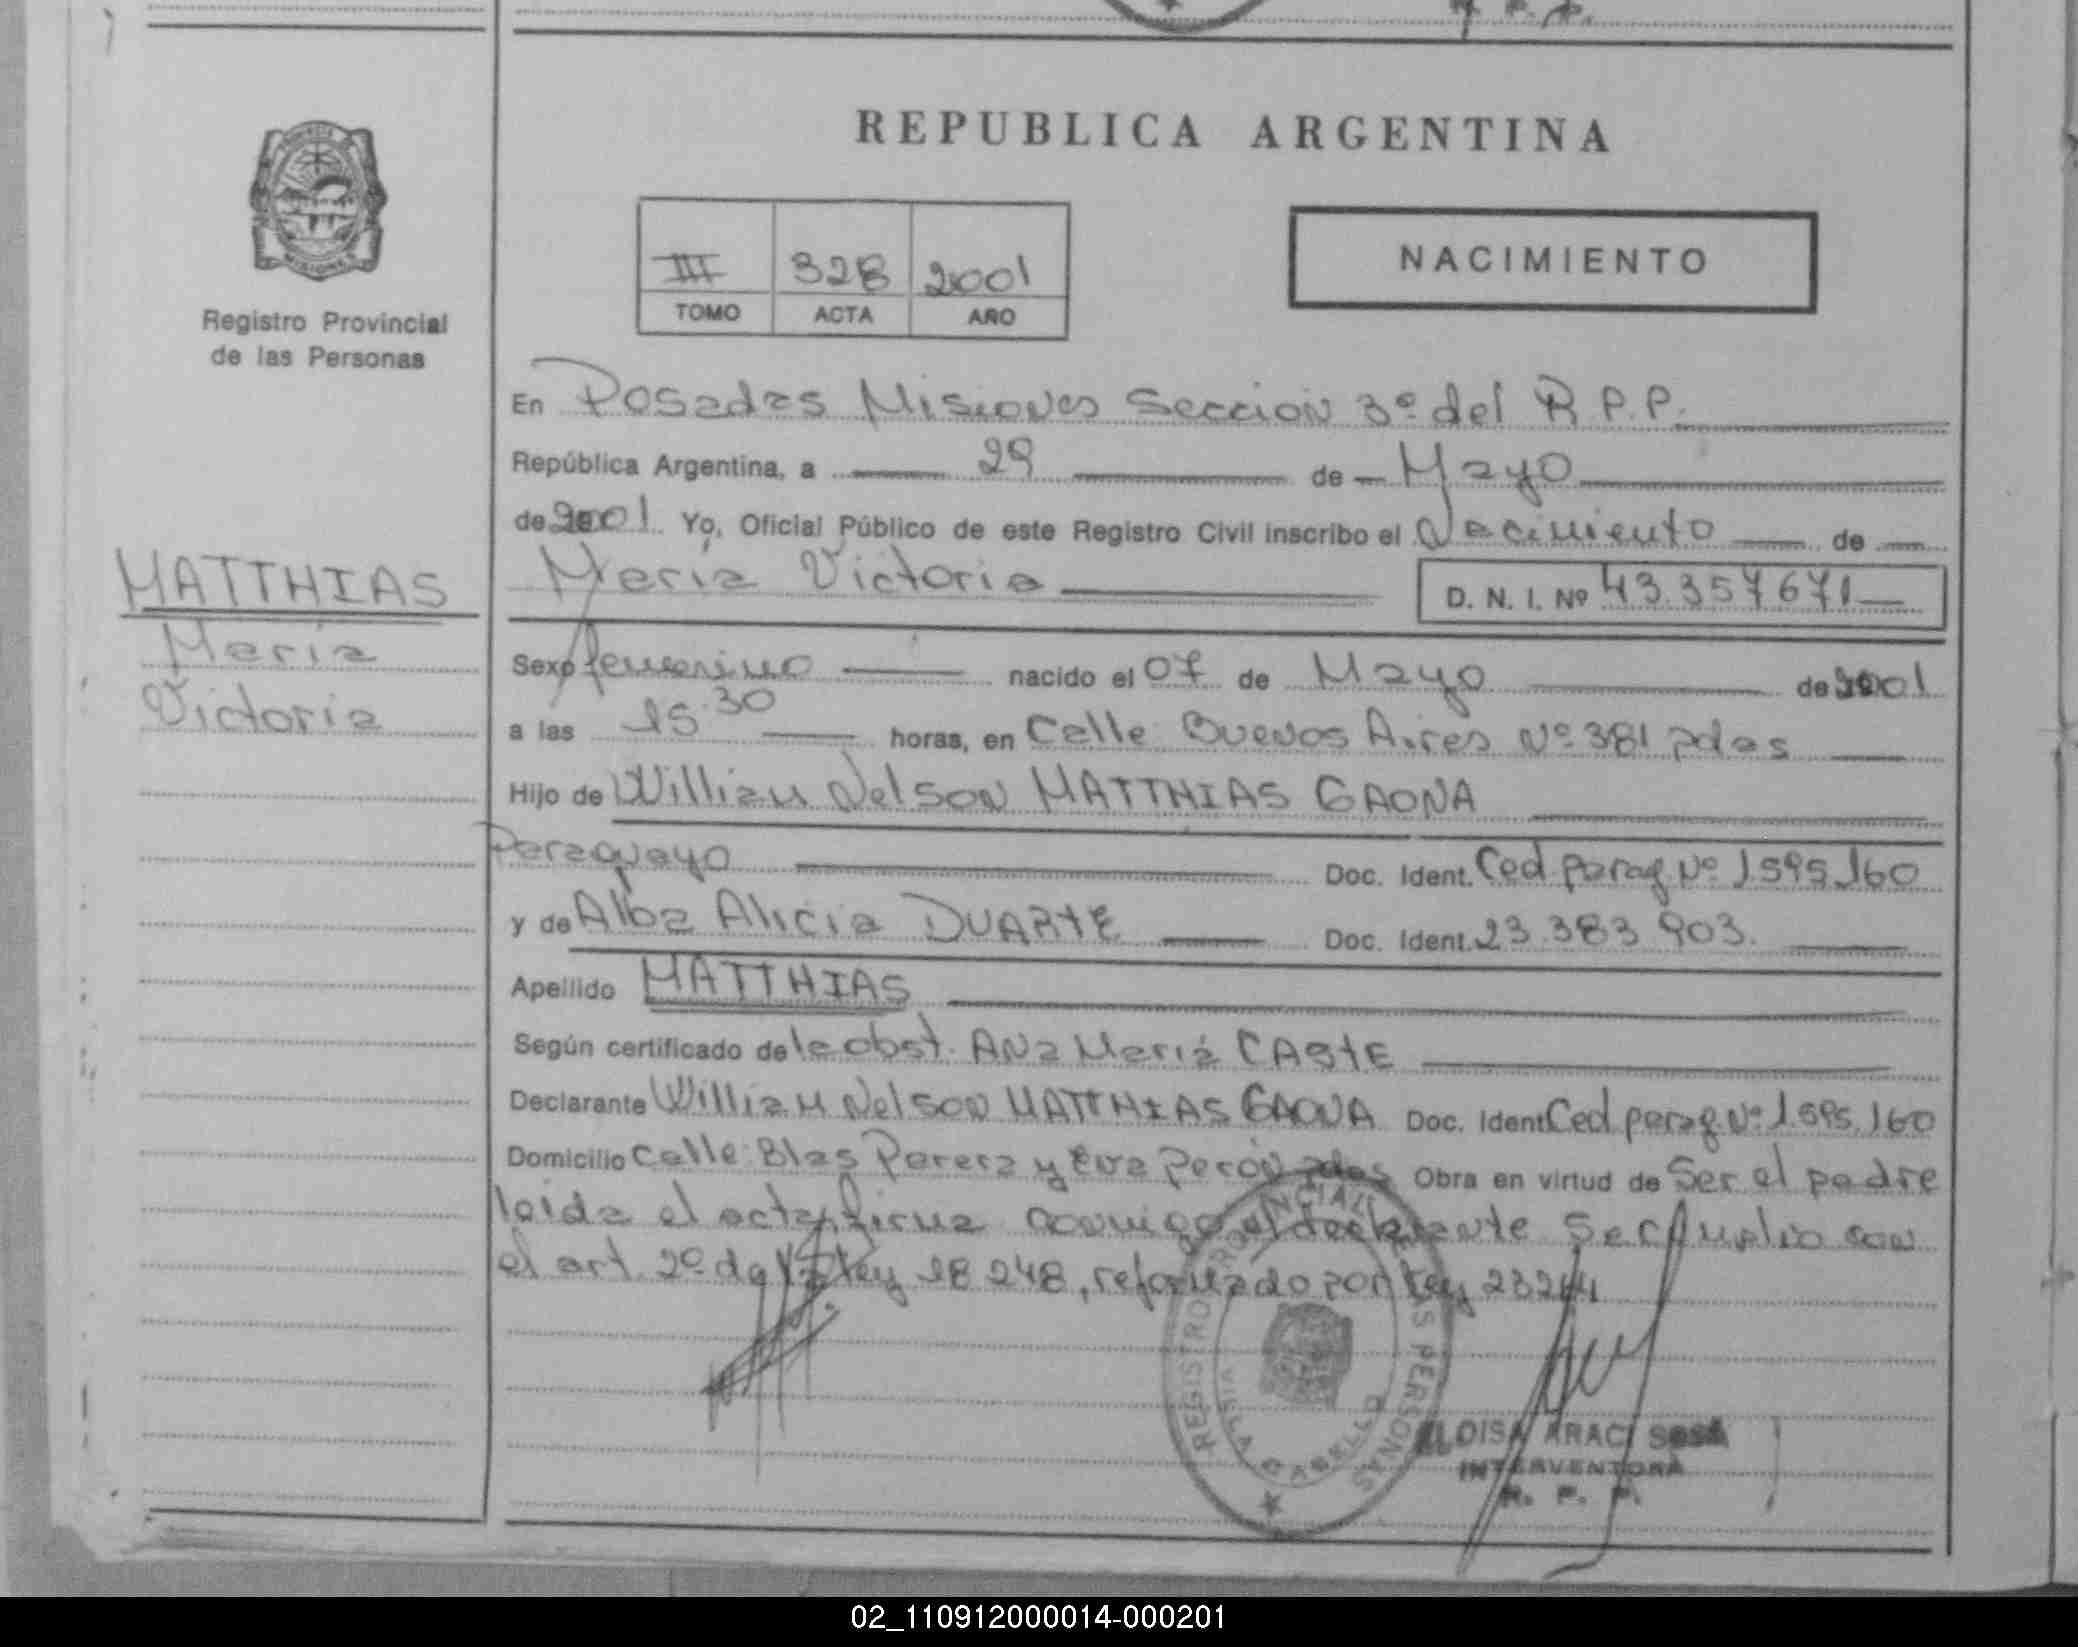 REPUBLICA ARGENTINA
MISIONES
Registro Provincial
de las Personas
III 328 2001
TOMO ACTA AÑO
NACIMIENTO
En Posadas Misiones Seccion 3º del R.P.P.
República Argentina, a 29 de Mayo
de 2001 Yo, Oficial Público de este Registro Civil inscribo el Nacimiento de
María Victoria D. N. I. Nº 43.357671
MATTHIAS
María
Victoria
Sexo femenino nacido el 07 de Mayo de 2001
a las 15.30 horas, en Calle Buenos Aires Nº 381 pdas
Hijo de William Nelson MATTHIAS GAONA
Paraguayo Doc. Ident. Ced parag. Nº 1.595.160
y de Alba Alicia DUARTE Doc. Ident. 23.383 903.
Apellido MATTHIAS
Según certificado de la obst. Ana María CASTE
Declarante William Nelson MATTHIAS GAONA Doc. Ident Ced parag. Nº 1.595.160
Domicilio Calle: Blas Parera y Eva Perón pdas Obra en virtud de Ser el padre
leida el acta, firma conmigo el declarante Se cumplio con
el art. 2º de la ley 18 248, reformado por ley 23264
REGISTRO PROVINCIAL DE LAS PERSONAS
ELOISA ARACI SOSA
INTERVENTORA
R. P. P.
02_110912000014-000201